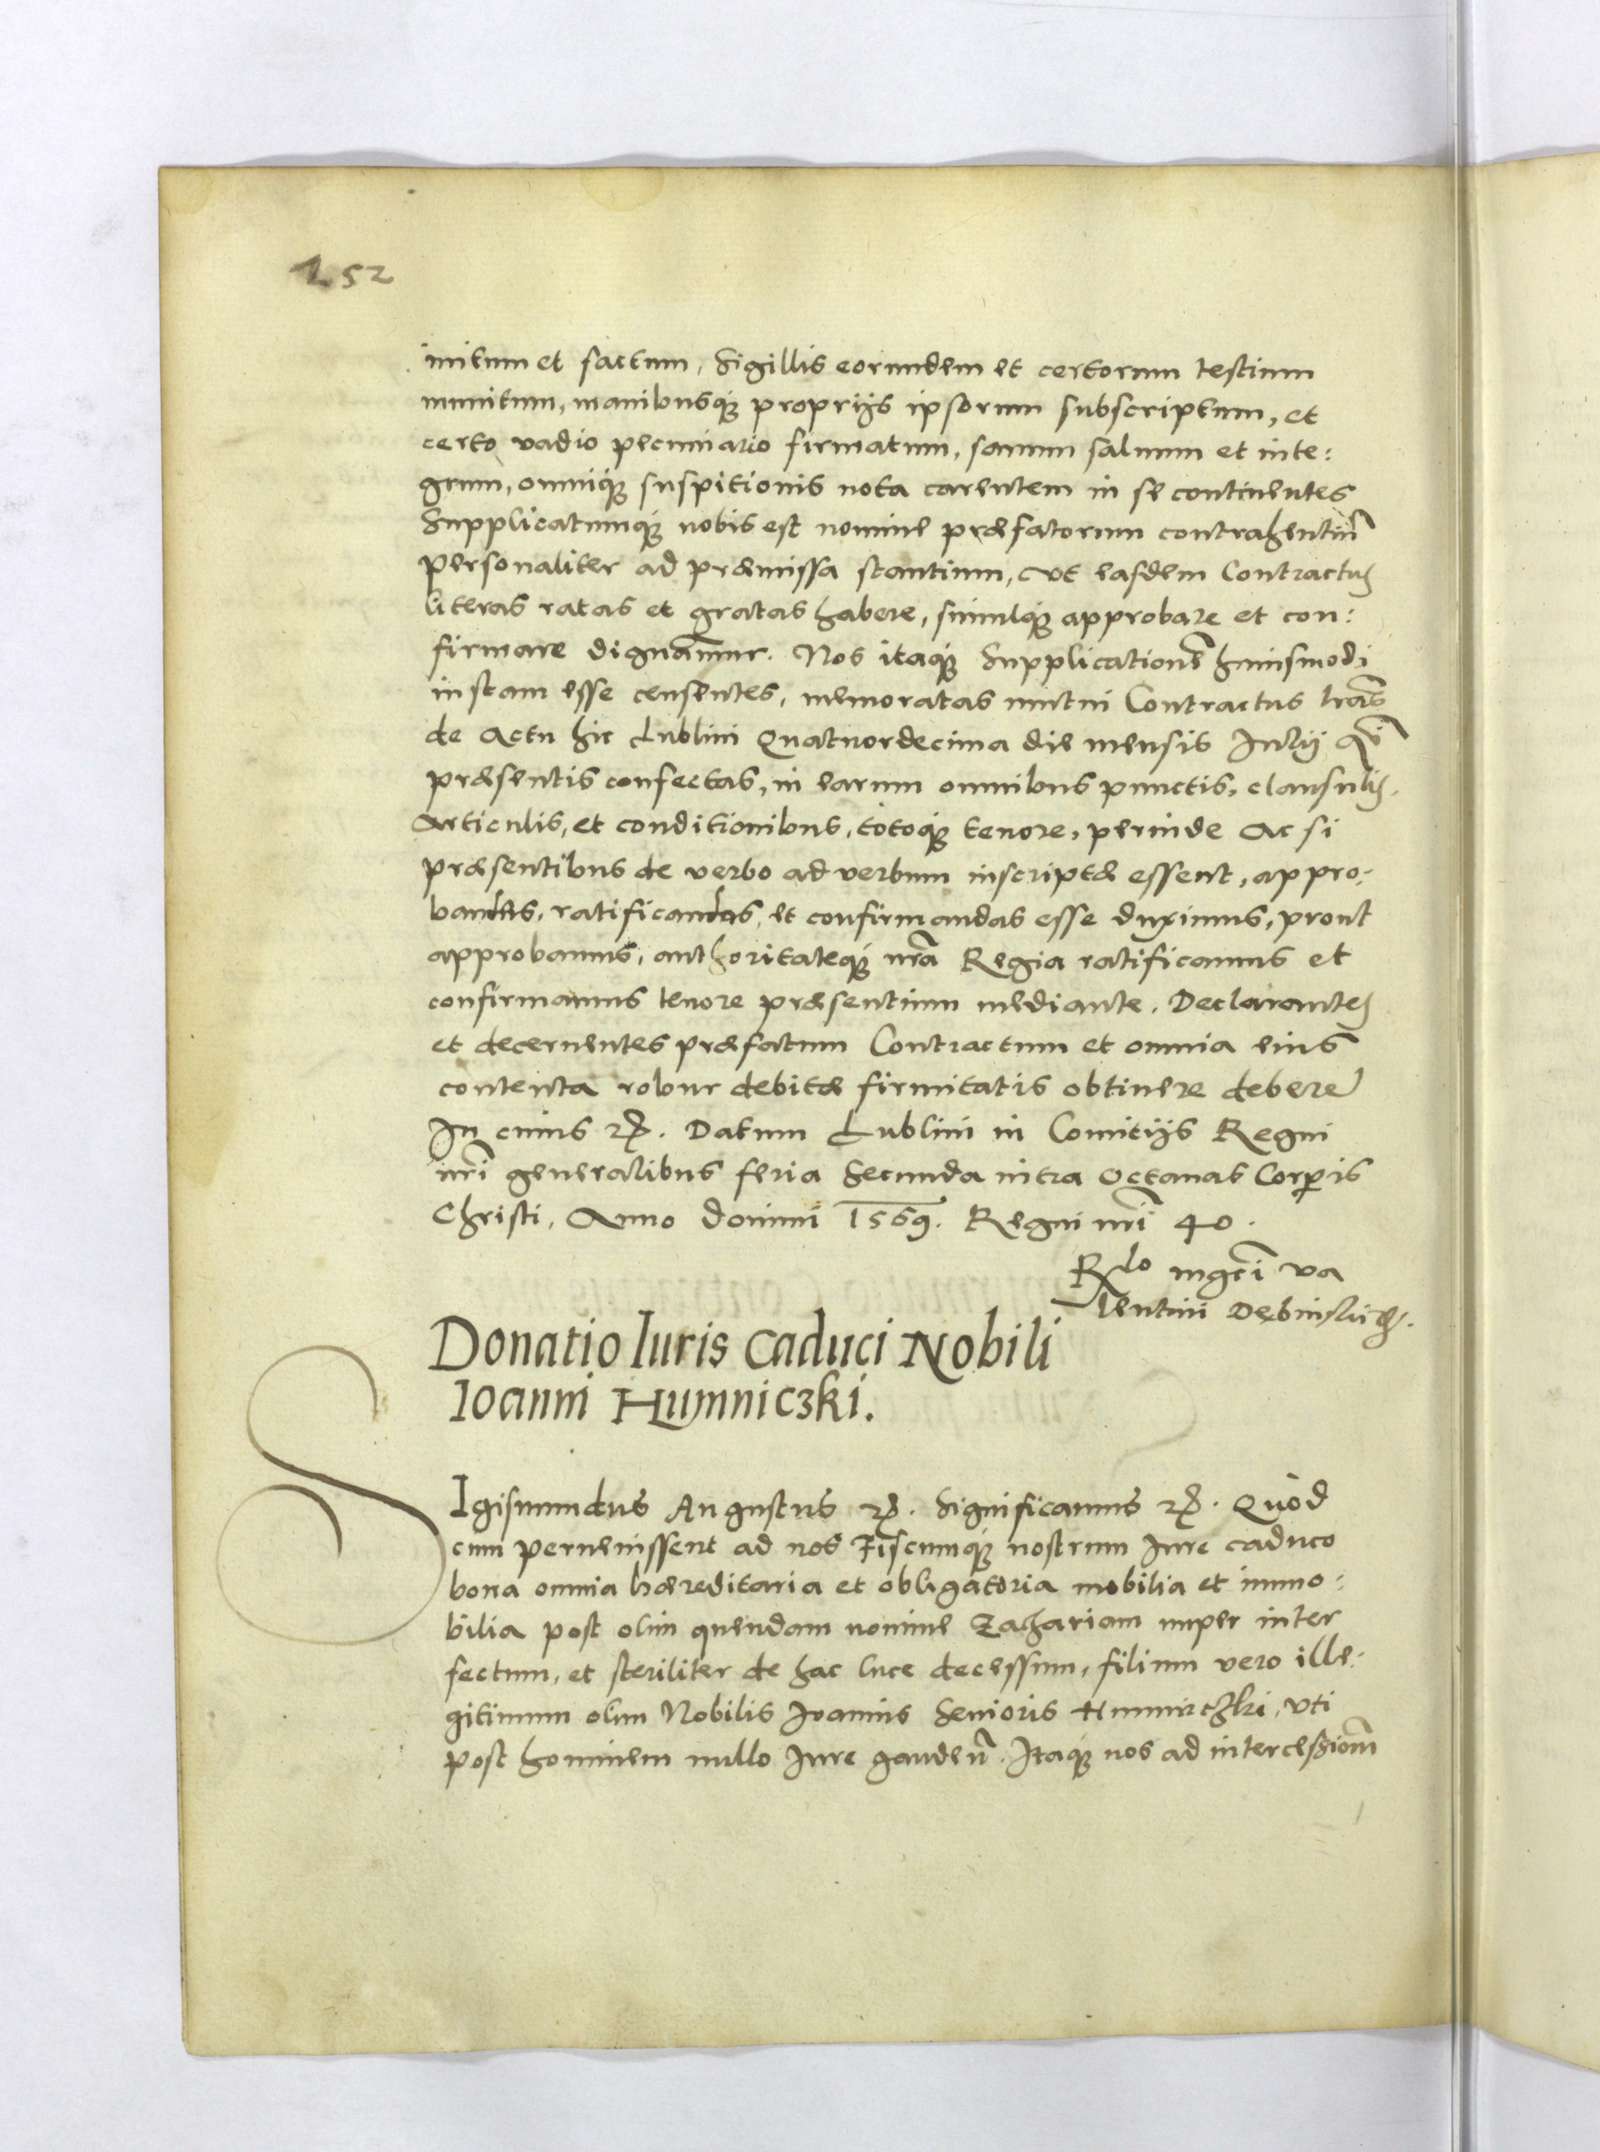 252
initum et factum, Sigillis eorundem et certorum testium
munitum, manibusq; proprijs ipsorum subscriptum, et
certo vadio pecuniario firmatum, sanum saluum et inte:
grum, omniq; suspitionis nota carentem in se continentes
Supplicatumq; nobis est nomine præfatorum contrahentiũ
personaliter ad præmissa stantium, vt easdem Contractus
literas ratas et gratas habere, simulq; approbare et con:
firmare dignaremur. Nos itaq; Supplicationẽ huiusmodi
iustam esse censentes, memoratas mutui Contractus lras
de Actu hic Lublini Quatuordecima die mensis Iulij
præsentis confectas, in earum omnibus punctis, clausulis,
Articulis, et conditionibus, totoq; tenore, perinde Ac si
præsentibus de verbo ad verbum inscriptæ essent, appro:
bandas, ratificandas, et confirmandas esse duximus, prout
approbamus, authoritateq; nra Regia ratificamus et
confirmamus tenore præsentium mediante. Declarantes
et decernentes præfatum Contractum et omnia eius
contenta robur debitæ firmitatis obtinere debere
In cuius rei. Datum Lublini in Comitijs Regni
nri generalibus feria Secunda intra Octauas Corporis
Christi, Anno domini 1569. Regni nri 40.
Rlo mgci Va
lentini Debinski etc.
Donatio Iuris Caduci Nobili
Ioanni Humniczki.
SIgismundus Augustus etc. Significamus etc. Quòd
cum peruenissent ad nos Fiscumq; nostrum Iure caduco
bona omnia hæreditaria et obligatoria mobilia et immo:
bilia post olim quendam nomine Zachariam nuper inter
fectum, et steriliter de hac luce decessum, filium vero ille:
gitimum olim Nobilis Ioannis Senioris Humniczki, vti
post hominem nullo Iure gauden. Itaq; nos ad intercessionẽ